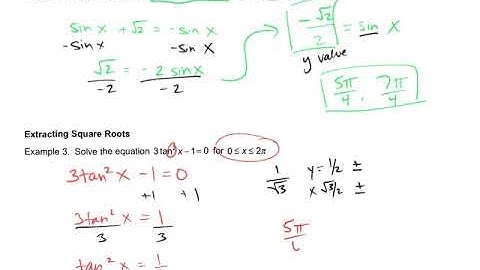 sin x + √2 = - sin x
-sin x -sin x
√2 = -2 sin x
-2 -2
-√2/2 = sin x
y value
5π/4, 7π/4
Extracting Square Roots
Example 3. Solve the equation 3 tan² x − 1 = 0 for 0 ≤ x ≤ 2π
3tan² x - 1 = 0
+1 +1
3tan² x = 1
3 3
tan² x = 1
1/√3 y = 1/2 ±
x √3/2 ±
5π